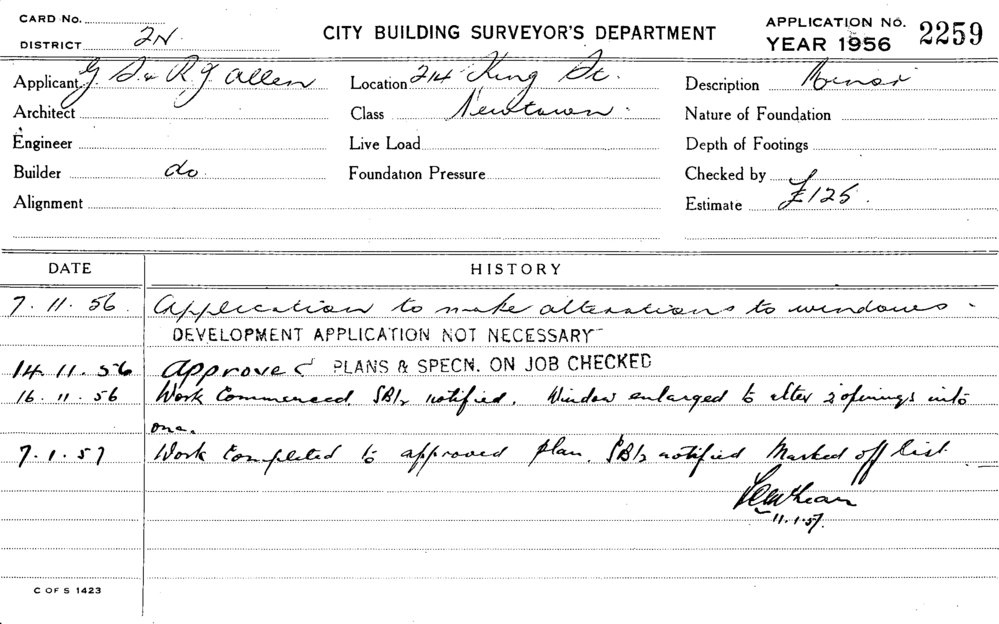 CARD NO.
DISTRICT 2N
CITY BUILDING SURVEYOR'S DEPARTMENT
APPLICATION NO. 2259
YEAR 1956
Applicant G. S. & R. J. Allen
Location 214 King St.
Description Minor
Architect
Class Newtown.
Nature of Foundation
Engineer
Live Load
Depth of Footings
Builder do
Foundation Pressure
Checked by
Alignment
Estimate £125.
DATE HISTORY
7.11.56. Application to make alterations to windows.
DEVELOPMENT APPLICATION NOT NECESSARY
14.11.56 Approved PLANS & SPECN. ON JOB CHECKED
16.11.56 Work Commenced. notified. Window enlarged to alter 2 openings into
one.
7.1.57 Work Completed to approved plan. notified Marked off list
11.1.57.
C OF S 1423